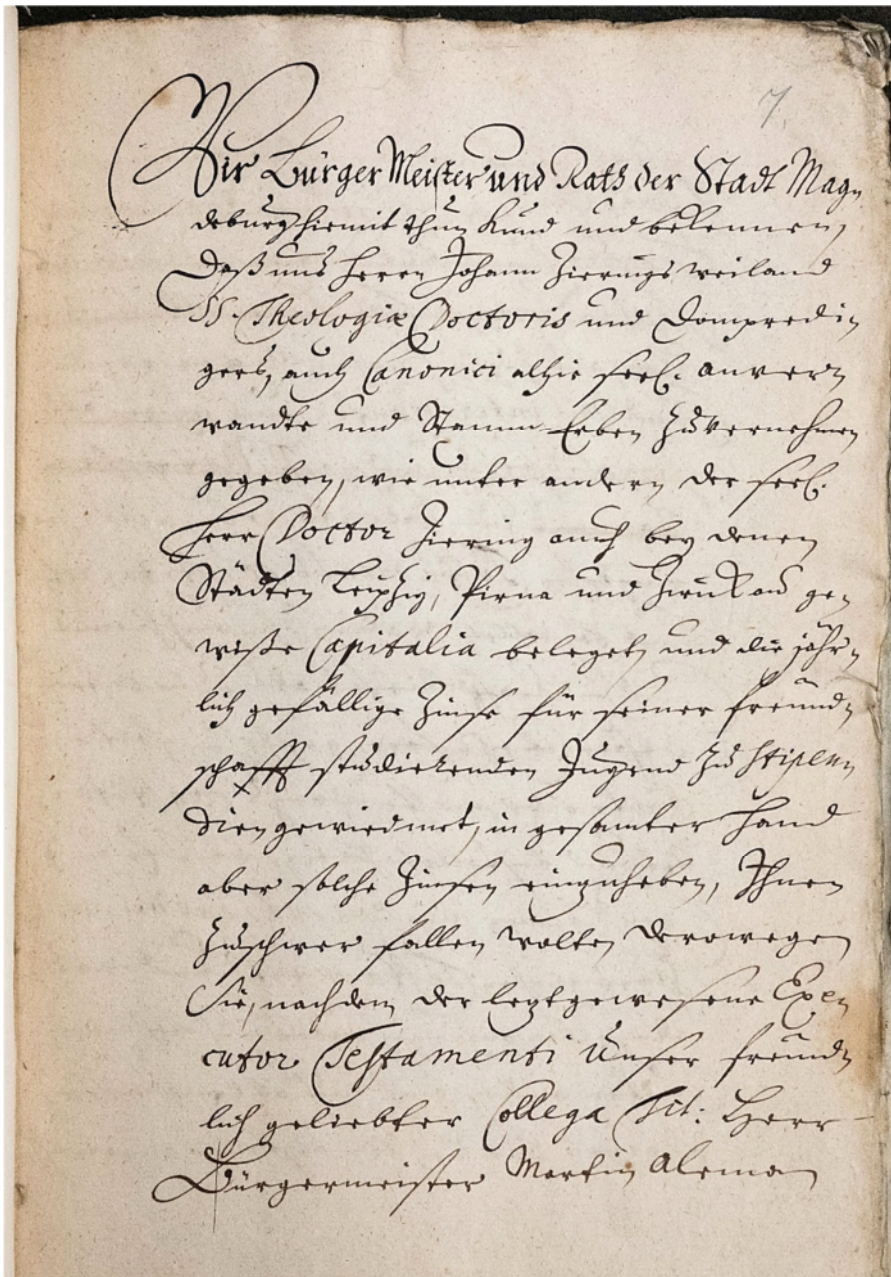 7.
Wir Bürger Meister und Rath der Stadt Mag-
deburg hiemit thun kund und bekennen,
Daß uns Herrn Johann Zierings weiland
SS. Theologiæ Doctoris und Dompredi-
gers, auch Canonici alhie seel. anver-
wandte und Stamm Erben zu vernehmen
gegeben, wie unter andern der seel.
Herr Doctor Ziering auch bey denen
Städten Leipzig, Pirna und Zwickau ge-
wiße Capitalia beleget, und die jähr-
lich gefällige Zinse für seiner freund-
schafft studierenden Jugend zu stipen-
dien gewiedmet, in gesamter Hand
aber solche Zinsen einzuheben, Ihnen
zuschwer fallen wolte, derowegen
Sie, nachdem der letztgewesene Exe-
cutor Testamenti Unser freund-
lich geliebter Collega Tit: Herr
Bürgermeister Martin Aleman